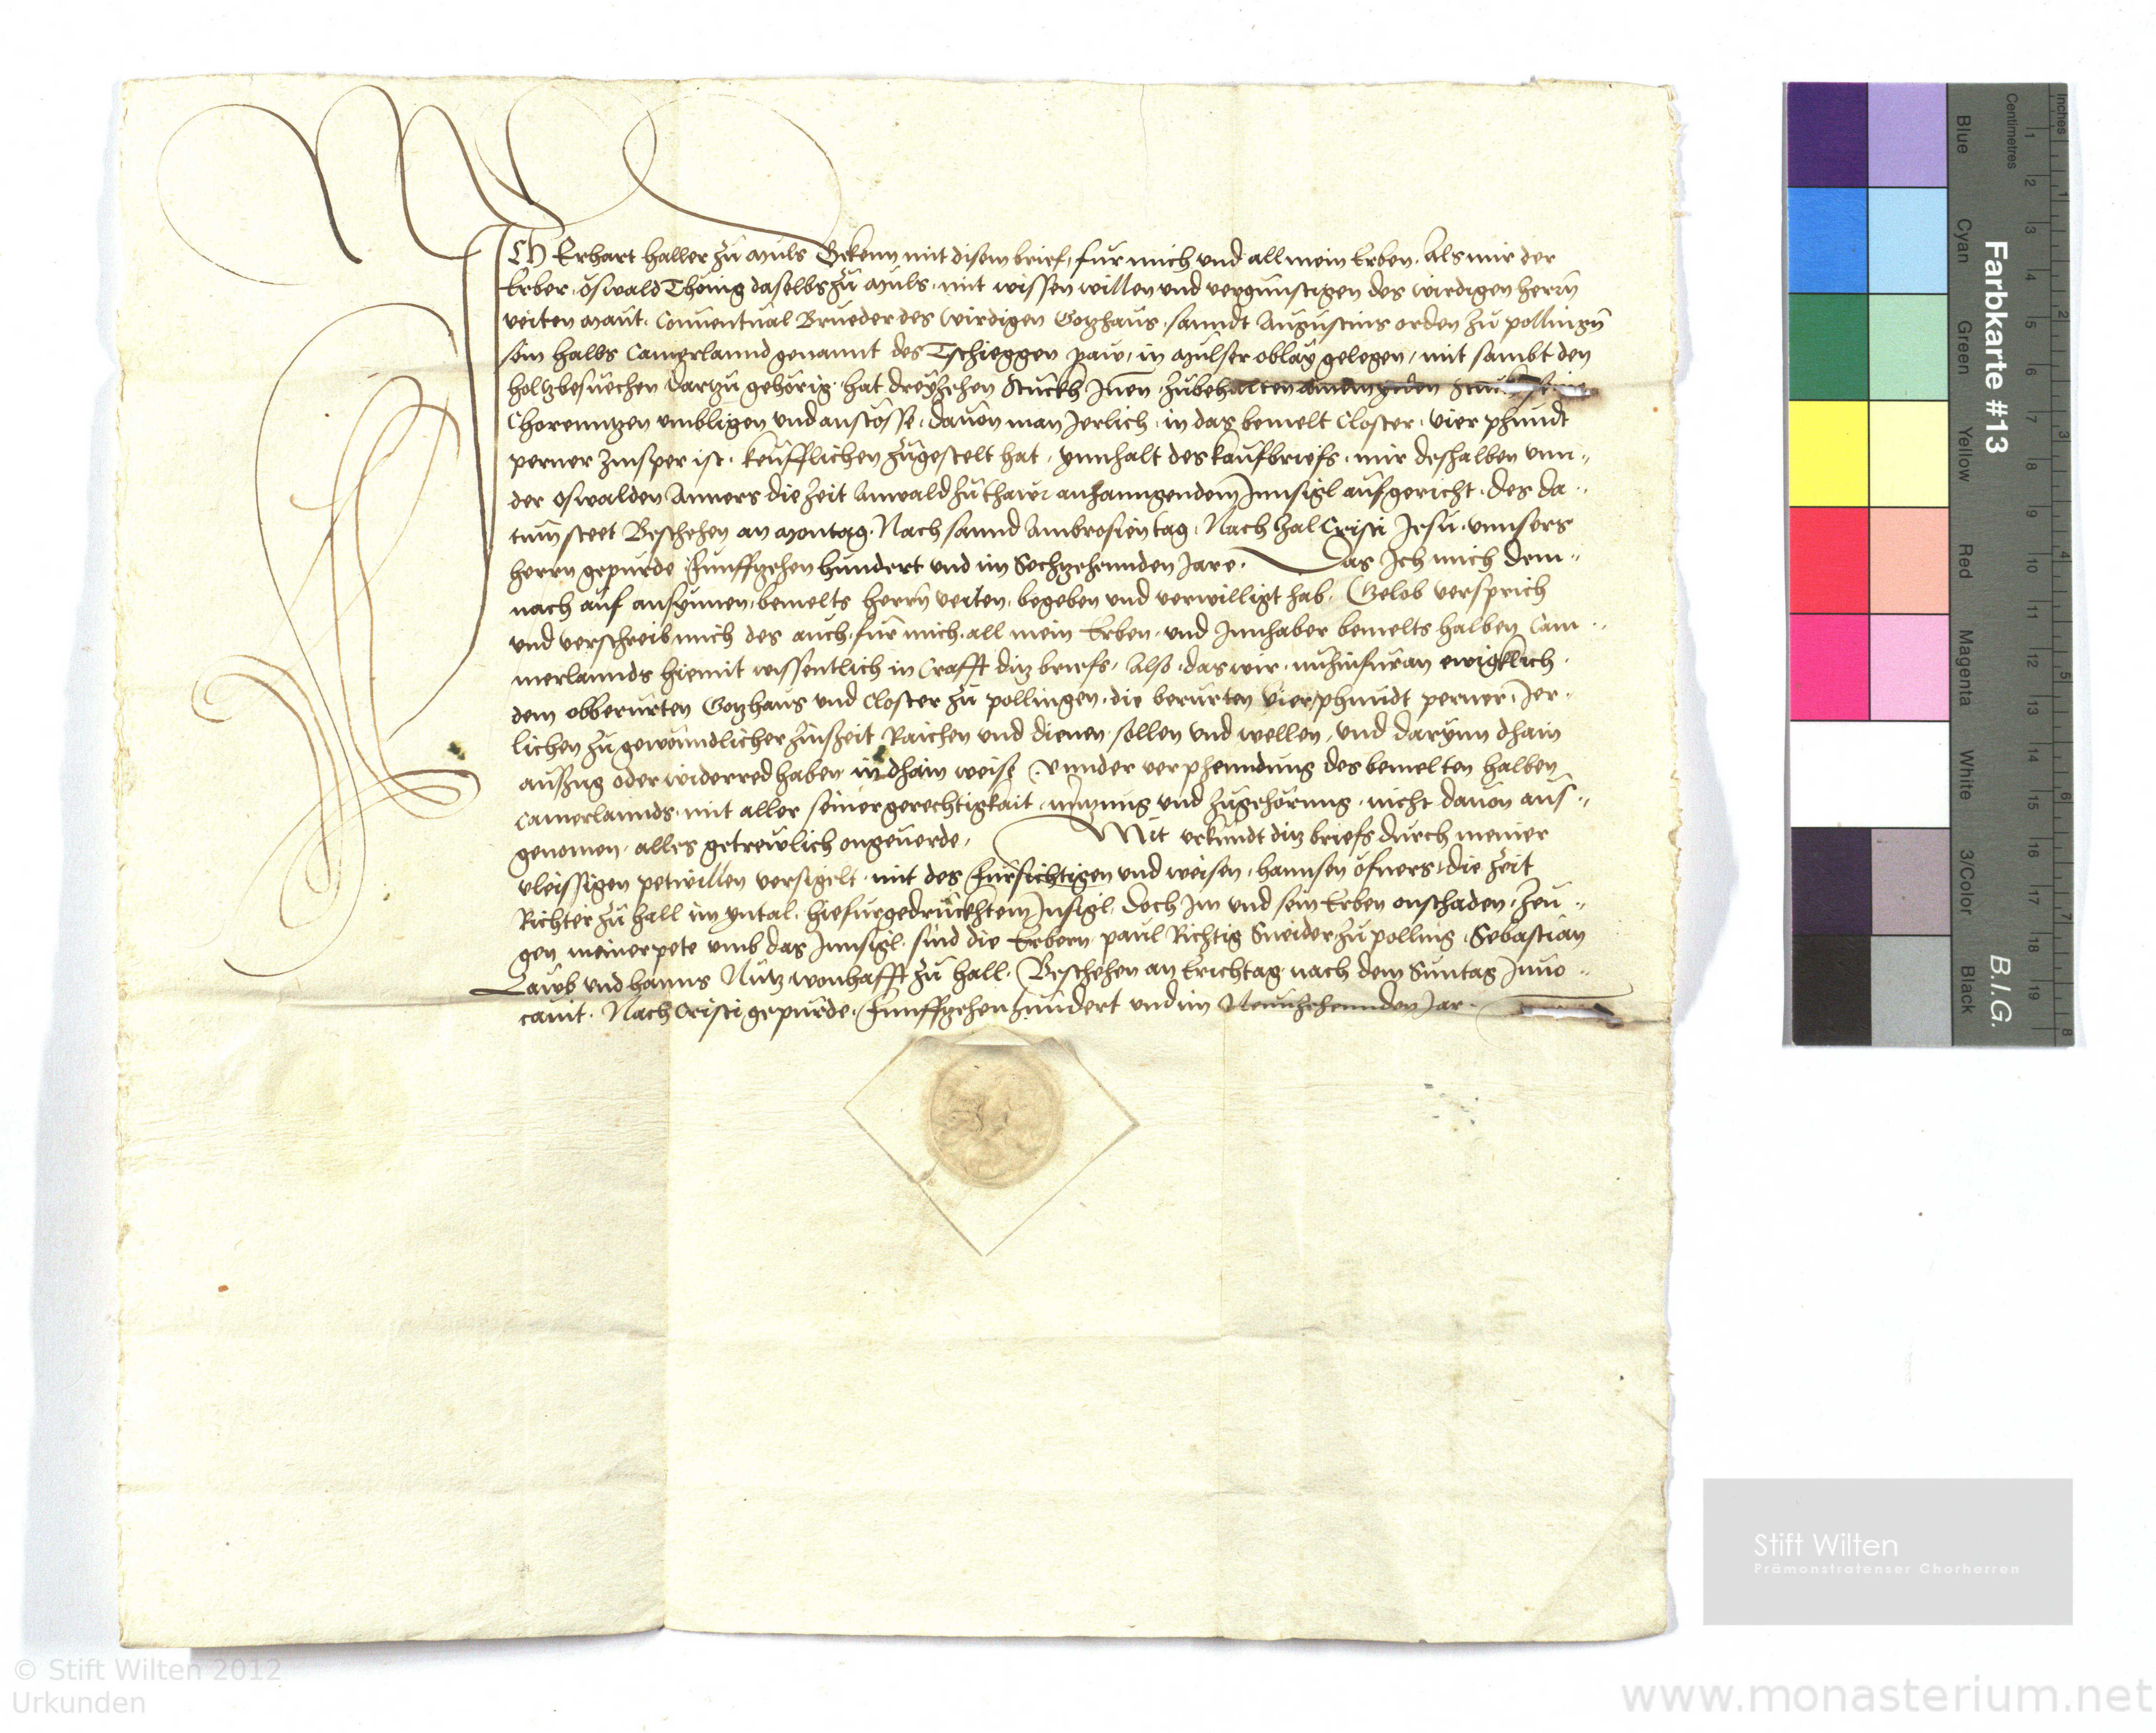 ICH Erhart Haller zu Muls Bekenn mit disem brief, fur mich und all mein Erben. Als mir der
Erber. Oswald Thönig daselbs zu Muls. mit wissen willen und vergunstigen des wirdigen herrn
veiten Conuentual Brueder des wirdigen Gotzhaus. sanndt Augustins orden zu pollingn
sein halbs Camerlannd genannt des Tschieggen paw, in Mulser oblay gelegen, mit sambt den
holtzbesuechen dartzu gehörig. hat dreyzehen Stuckh Innen. zubehalten
umbligen und anstösse. dauon man Jerlich. in das bemelt Closter. vier phundt
perner zinsper ist. keufflichen zugestelt hat. ynnhalt des kaufbriefs. mir deshalben vnn¨
der Oswalden die zeit Anwald zu Thawr anhanngendem Innsigl aufgericht. des da¨
tum steet Beschehen an Montag. Nach sannd Ambrosien tag. Nach Cristi Jesu. vnnsers
herrn gepurde funffzehen hundert und im Sechzehennden Jare. Das Ich mich dem¨
nach auf ansynnen. bemelts herrn veiten. begeben und verwilligt hab. Gelob versprich
und verschreib mich des auch. fur mich. all mein Erben. und Innhaber bemelts halben Cam¨
merlannds hiemit wissentlich in Crafft ditz briefs. Also. das wir. nuhinfuran ewigklich.
dem obberurten Gotzhaus und Closter zu pollingen. die berurten vier phundt perner. Jer¨
lichen zu gewonndlicher zinszeit Raichen und dienen sollen und wellen, und darynn dhain
auszug oder widerred haben in dhain weise. vnnder verphenndung des bemelten halben
Camerlannds. mit aller seiner gerechtigkait. nutzung und zugehörung. nicht dauon aus¨
genomen. alles getreulich ongeuerde. Mit urkundt ditz briefs durch meiner
vleissigen petwillen versigelt. mit des fursichtigen und weisen. hannsen öfners. die zeit
Richter zu hall im yntal. hiefurgedruckhtem Insigl. doch Im und sein Erben onschaden. zeu¨
gen meiner pete umb das Innsigl. sind die Erbern paul Richtig Sneider zu polling. Sebastian
Lawb und hanns Nutz wonhafft zu hall. Beschehen an Erichtag nach dem Suntag Inuo¨
cauit. Nach Cristi gepurde. funffzehenhundert und im Neunzehennden Jar.
Farbkarte #13
B.I.G.
Inches
Centimetres
Blue
Cyan
Green
Yellow
Red
Magenta
White
3/Color
Black
1 2 3 4 5 6 7 8 9 10 11 12 13 14 15 16 17 18 19
1 2 3 4 5 6 7 8
Stift Wilten
Prämonstratenser Chorherren
© Stift Wilten 2012
Urkunden
www.monasterium.net